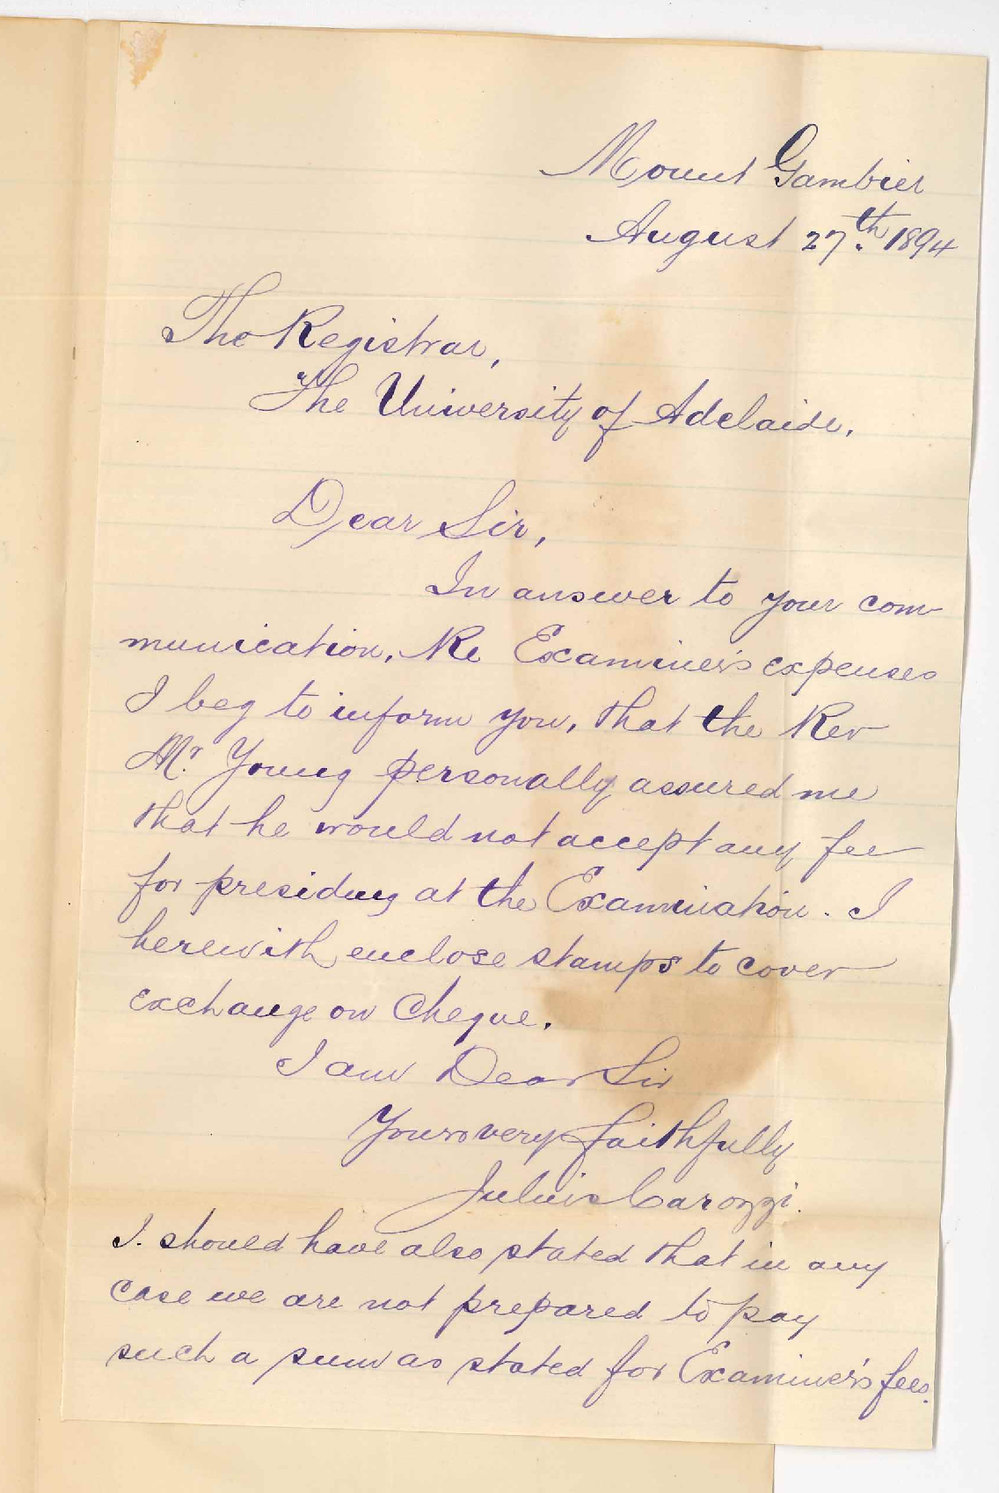 Mount Gambier
August 27th. 1894
The Registrar,
The University of Adelaide.
Dear Sir,
In answer to your com-
munication, Re Examiner's expenses
I beg to inform you, that the Rev
Mr. Young personally assured me
that he would not accept any fee
for presiding at the Examination. I
herewith enclose stamps to cover
exchange on Cheque.
I am Dear Sir
Yours very faithfully
Julius Carozzi.
I. should have also stated that in any
case we are not prepared to pay
such a sum as stated for Examiner's fees.